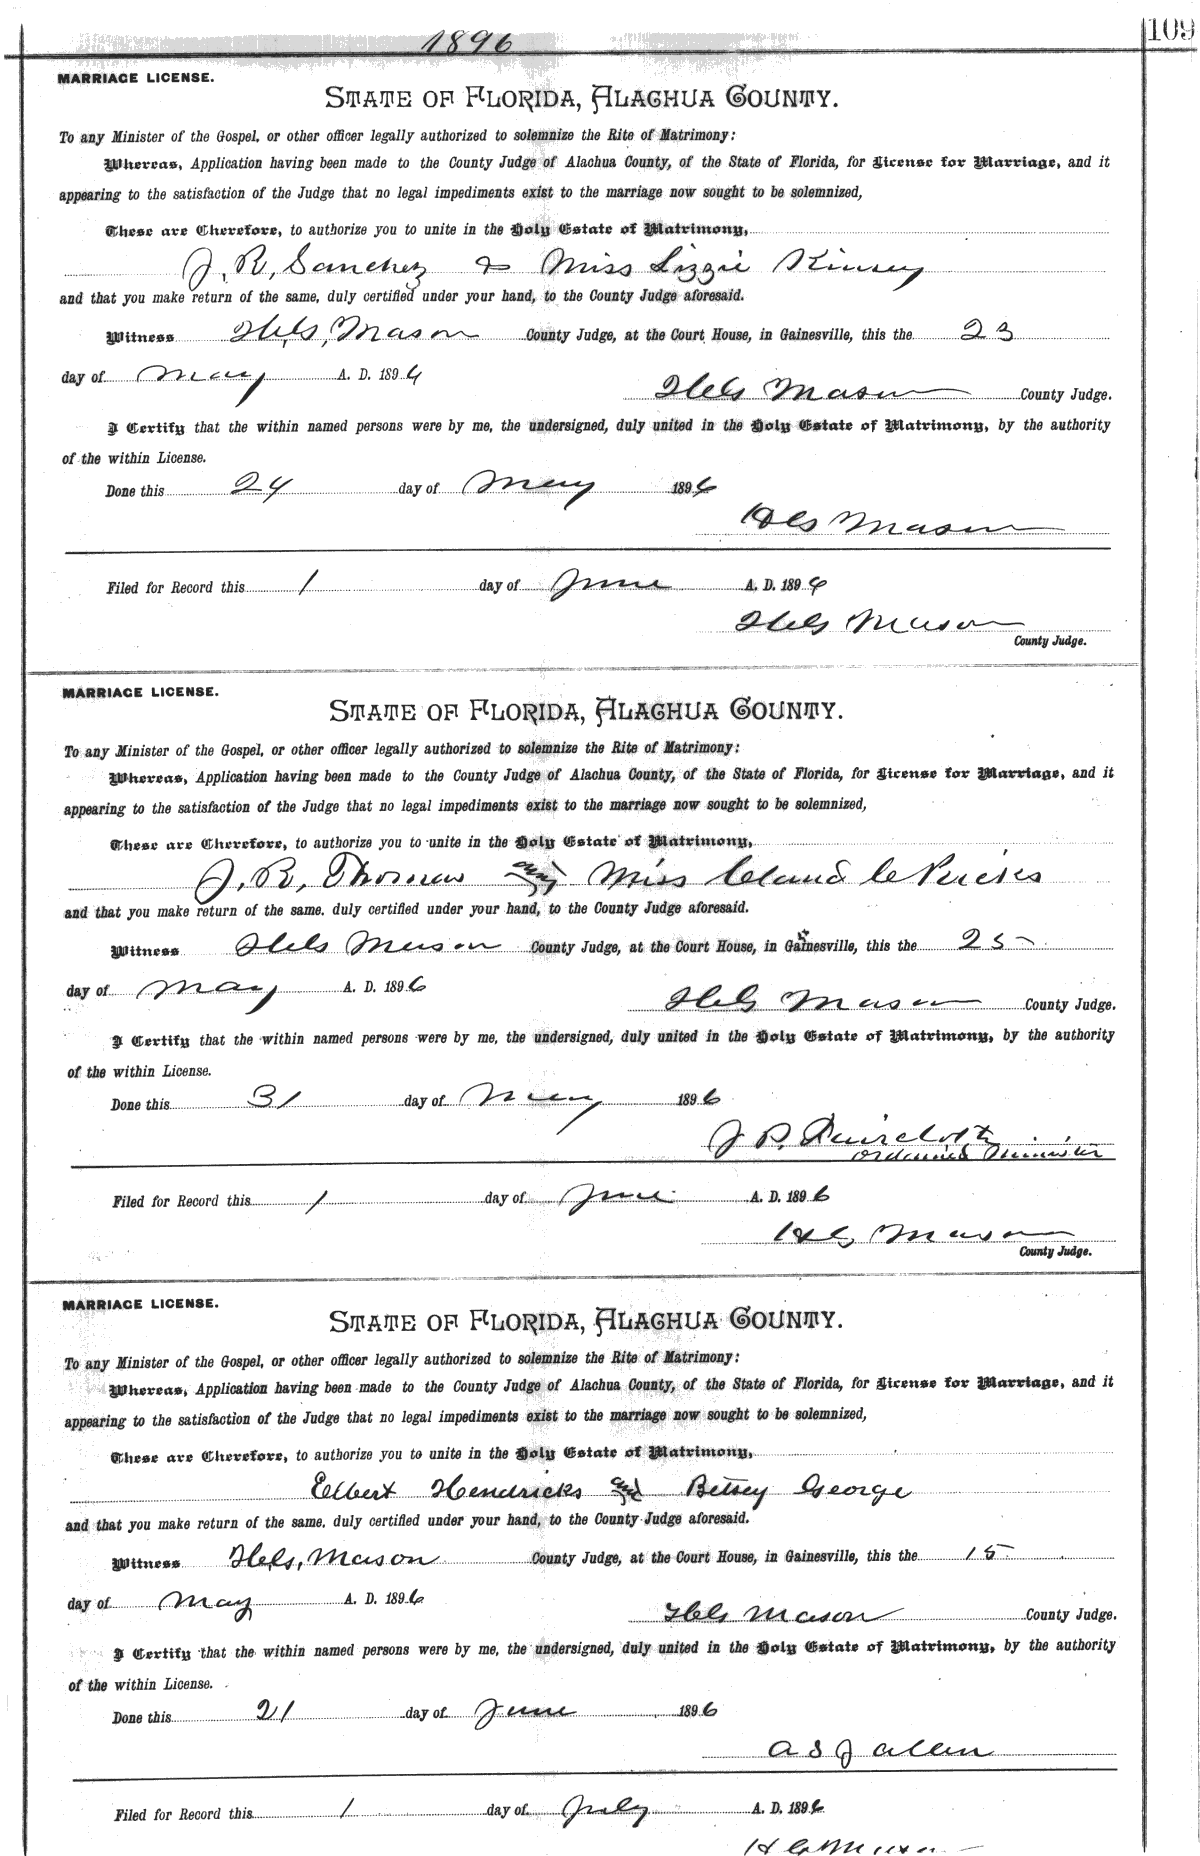 1896
109
MARRIAGE LICENSE.
STATE OF FLORIDA, ALACHUA COUNTY.
To any Minister of the Gospel, or other officer legally authorized to solemnize the Rite of Matrimony:
Whereas, Application having been made to the County Judge of Alachua County, of the State of Florida, for License for Marriage, and it
appearing to the satisfaction of the Judge that no legal impediments exist to the marriage now sought to be solemnized,
These are Therefore, to authorize you to unite in the Holy Estate of Matrimony,
J. R. Sanchez & Miss Lizzie Kinsey
and that you make return of the same, duly certified under your hand, to the County Judge aforesaid.
Witness Mason County Judge, at the Court House, in Gainesville, this the 23
day of May A. D. 1896
Mason County Judge.
I Certify that the within named persons were by me, the undersigned, duly united in the Holy Estate of Matrimony, by the authority
of the within License.
Done this 24 day of May 1896
Mason
Filed for Record this 1 day of June A. D. 1896
Mason
County Judge.
MARRIAGE LICENSE.
STATE OF FLORIDA, ALACHUA COUNTY.
To any Minister of the Gospel, or other officer legally authorized to solemnize the Rite of Matrimony:
Whereas, Application having been made to the County Judge of Alachua County, of the State of Florida, for License for Marriage, and it
appearing to the satisfaction of the Judge that no legal impediments exist to the marriage now sought to be solemnized,
These are Therefore, to authorize you to unite in the Holy Estate of Matrimony,
J. R. Thomas and Miss
and that you make return of the same, duly certified under your hand, to the County Judge aforesaid.
Witness Mason County Judge, at the Court House, in Gainesville, this the 25
day of May A. D. 1896
Mason County Judge.
I Certify that the within named persons were by me, the undersigned, duly united in the Holy Estate of Matrimony, by the authority
of the within License.
Done this 31 day of May 1896
J. P. Faircloth
ordained Minister
Filed for Record this 1 day of June A. D. 1896
Mason
County Judge.
MARRIAGE LICENSE.
STATE OF FLORIDA, ALACHUA COUNTY.
To any Minister of the Gospel, or other officer legally authorized to solemnize the Rite of Matrimony:
Whereas, Application having been made to the County Judge of Alachua County, of the State of Florida, for License for Marriage, and it
appearing to the satisfaction of the Judge that no legal impediments exist to the marriage now sought to be solemnized,
These are Therefore, to authorize you to unite in the Holy Estate of Matrimony,
Elbert Hendricks and Betsey George
and that you make return of the same, duly certified under your hand, to the County Judge aforesaid.
Witness Mason County Judge, at the Court House, in Gainesville, this the 15
day of May A. D. 1896
Mason County Judge.
I Certify that the within named persons were by me, the undersigned, duly united in the Holy Estate of Matrimony, by the authority
of the within License.
Done this 21 day of June 1896
A S J Allen
Filed for Record this 1 day of July A. D. 1896
Mason